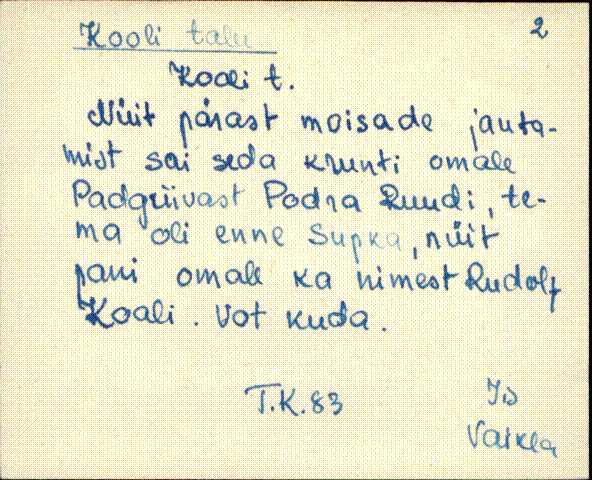 Kooli talu
2
Kooli t.
Nüit pärast moisade jauta-
mist sai seda krunti omale
Padgüivast Podra Ruudi, te-
ma oli enne Supka, nüit
pani omale ka nimest Rudolf
Kooli. Vot kuda.
T.K. 83
Jõ
Vaikla